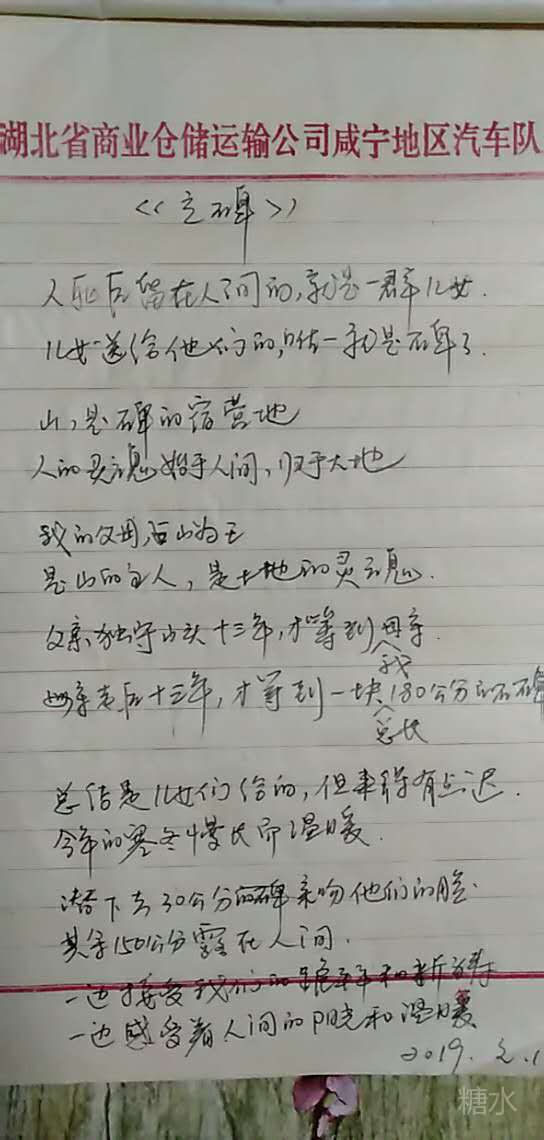 湖北省商业仓储运输公司咸宁地区汽车队
<<立碑>>
人死后留在人间的,就是一群儿女.
儿女送给他们的,唯一就是石碑了.
山,是碑的宿营地
人的灵魂始于人间,归于大地
我的父母,占山为王
是山的主人,是大地的灵魂.
父亲独守山头十三年,才等到母亲.
我
母亲走后十三年,才等到一块180公分的石碑
总长
总结是儿女们给的,但来得有点迟.
今年的寒冬慢长而温暖.
潜下去30公分的碑亲吻他们的脸.
其余150公分露在人间.
一边接受我们的跪拜和祈祷
一边感受着人间的阳光和温暖
2019.2.1
糖水